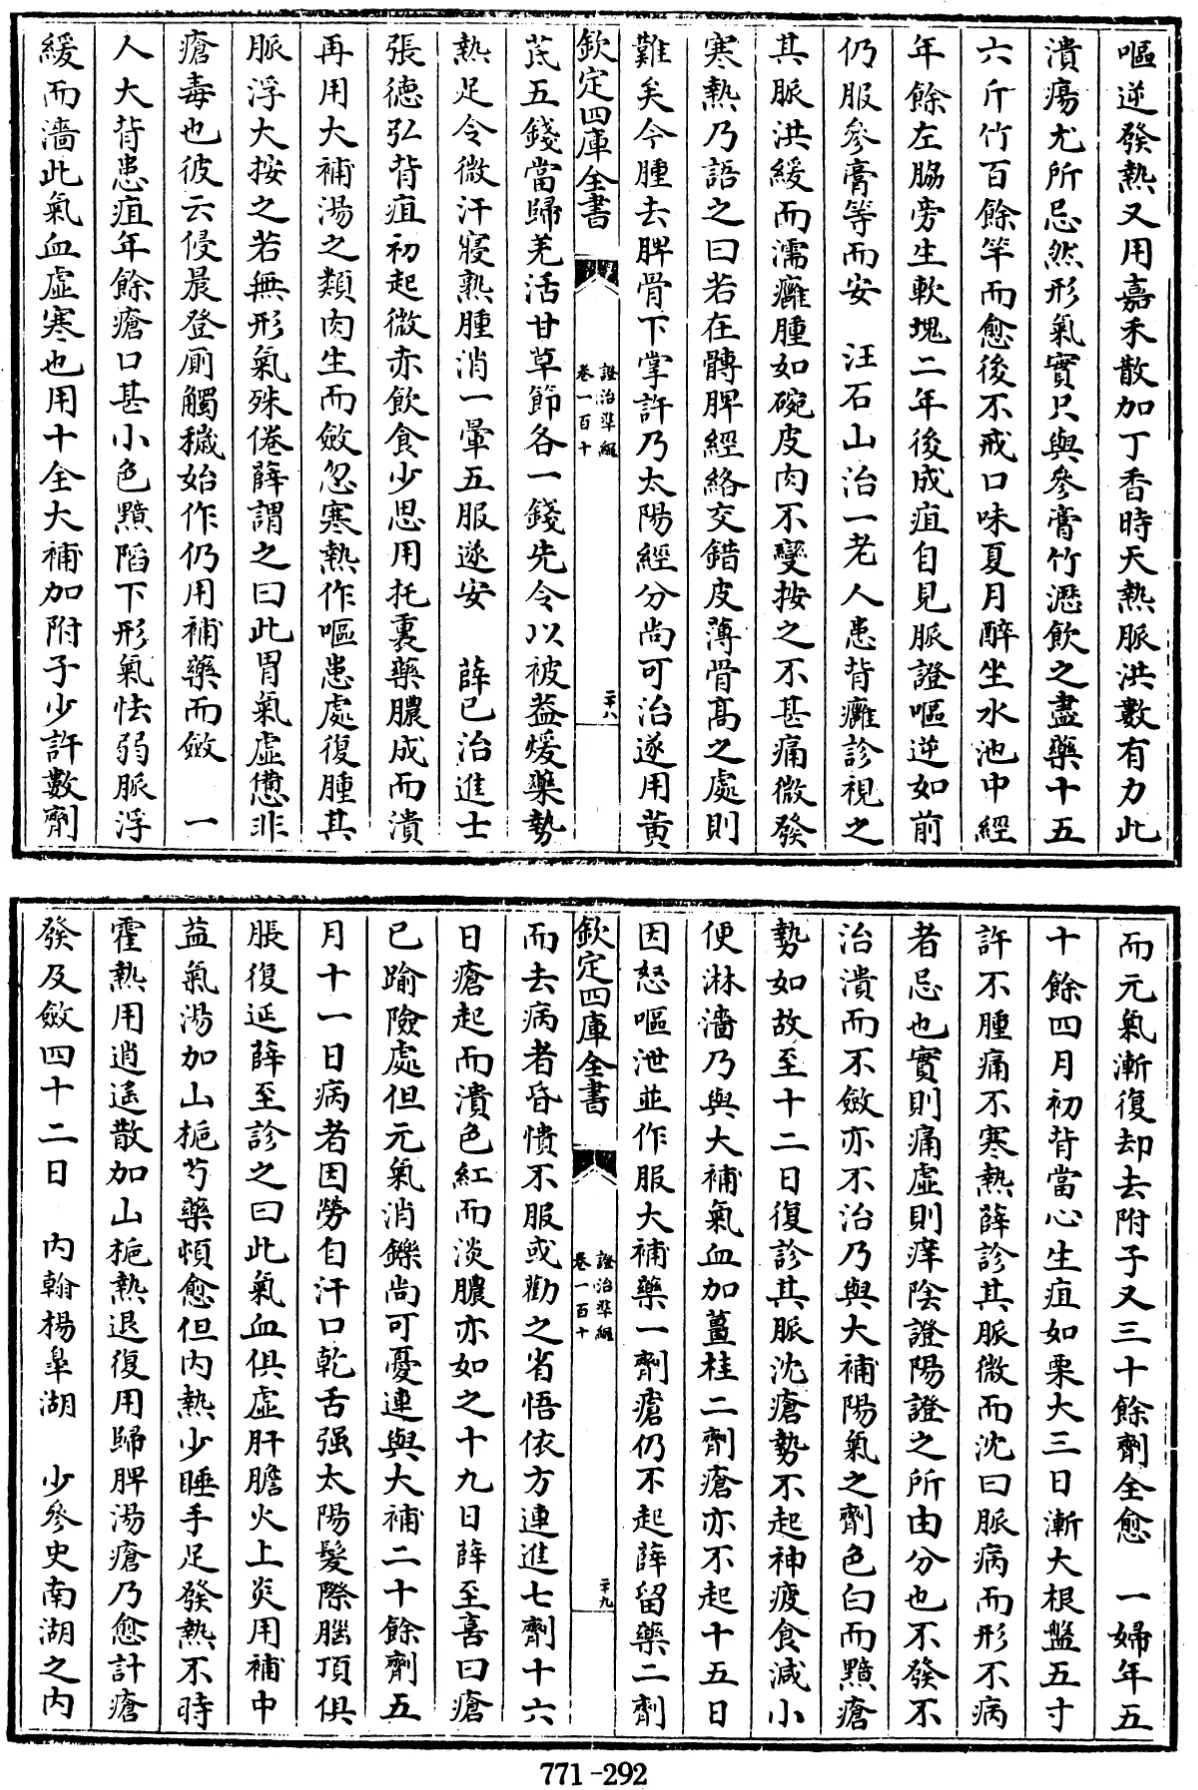 嘔逆發熱又用嘉禾散加丁香時天熱脈洪數有力此
潰瘍尤所忌然形氣實只與參膏竹瀝飲之盡藥十五
六斤竹百餘竿而愈後不戒口味夏月醉坐水池中經
年餘左脇旁生軟塊二年後成疽自見脈證嘔逆如前
仍服參膏等而安　汪石山治一老人患背癰診視之
其脈洪緩而濡癰腫如碗皮肉不變按之不甚痛微發
寒熱乃語之曰若在髆胛經絡交錯皮薄骨高之處則
難矣今腫去胛骨下掌許乃太陽經分尚可治遂用黄
欽定四庫全書
證治準繩
卷一百十
二十八
芪五錢當歸羌活甘草節各一錢先令以被葢煖藥勢
熱足令微汗寢熟腫消一暈五服遂安　薛已治進士
張德弘背疽初起微赤飲食少思用托裏藥膿成而潰
再用大補湯之類肉生而斂忽寒熱作嘔患處復腫其
脈浮大按之若無形氣殊倦薛謂之曰此胃氣虛憊非
瘡毒也彼云侵晨登厠觸穢始作仍用補藥而斂　一
人大背患疽年餘瘡口甚小色黯陷下形氣怯弱脈浮
緩而濇此氣血虛寒也用十全大補加附子少許數劑
而元氣漸復却去附子又三十餘劑全愈　一婦年五
十餘四月初背當心生疽如栗大三日漸大根盤五寸
許不腫痛不寒熱薛診其脈微而沈曰脈病而形不病
者忌也實則痛虛則痒陰證陽證之所由分也不發不
治潰而不斂亦不治乃與大補陽氣之劑色白而黯瘡
勢如故至十二日復診其脈沈瘡勢不起神疲食減小
便淋濇乃與大補氣血加薑桂二劑瘡亦不起十五日
因怒嘔泄並作服大補藥一劑瘡仍不起薛留藥二劑
欽定四庫全書
證治準繩
卷一百十
二十九
而去病者昏憒不服或勸之省悟依方連進七劑十六
日瘡起而潰色紅而淡膿亦如之十九日薛至喜曰瘡
已踰險處但元氣消鑠尚可憂連與大補二十餘劑五
月十一日病者因勞自汗口乾舌强太陽髮際腦頂俱
脹復延薛至診之曰此氣血俱虛肝膽火上炎用補中
益氣湯加山梔芍藥頓愈但内熱少睡手足發熱不時
霍熱用逍遥散加山梔熱退復用歸脾湯瘡乃愈計瘡
發及斂四十二日　内翰楊皐湖　少參史南湖之内
771-292